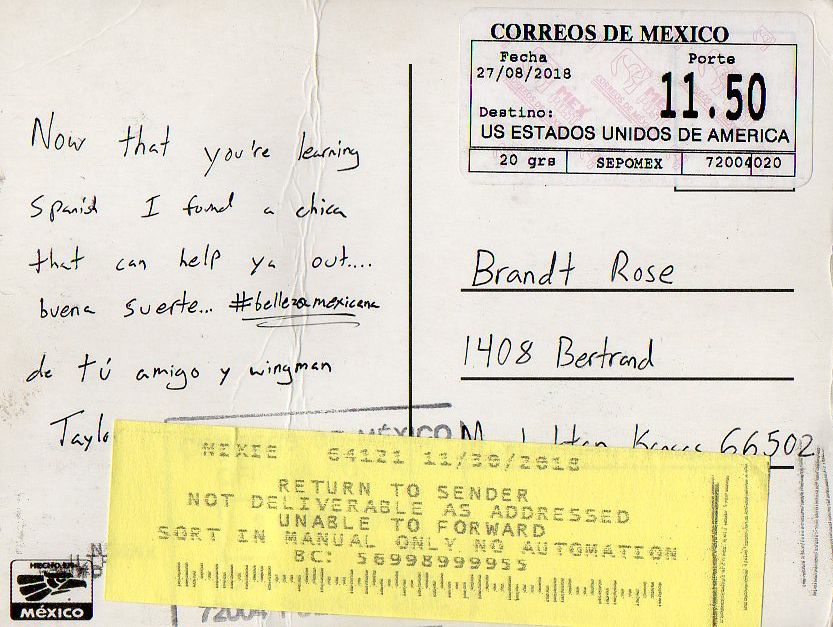 CORREOS DE MEXICO
Fecha
27/08/2018
Porte
11.50
Destino:
US ESTADOS UNIDOS DE AMERICA
20 grs SEPOMEX 72004020
Now that you're learning
Spanish I found a chica
that can help ya out....
buena suerte... #bellezamexicana
de tú amigo y wingman
Taylo
Brandt Rose
1408 Bertrand
Kansas 66502
MÉXICO
NIXIE 64121 11/30/2018
RETURN TO SENDER
NOT DELIVERABLE AS ADDRESSED
UNABLE TO FORWARD
SORT IN MANUAL ONLY NO AUTOMATION
BC: 56998999955
HECHO EN
MÉXICO